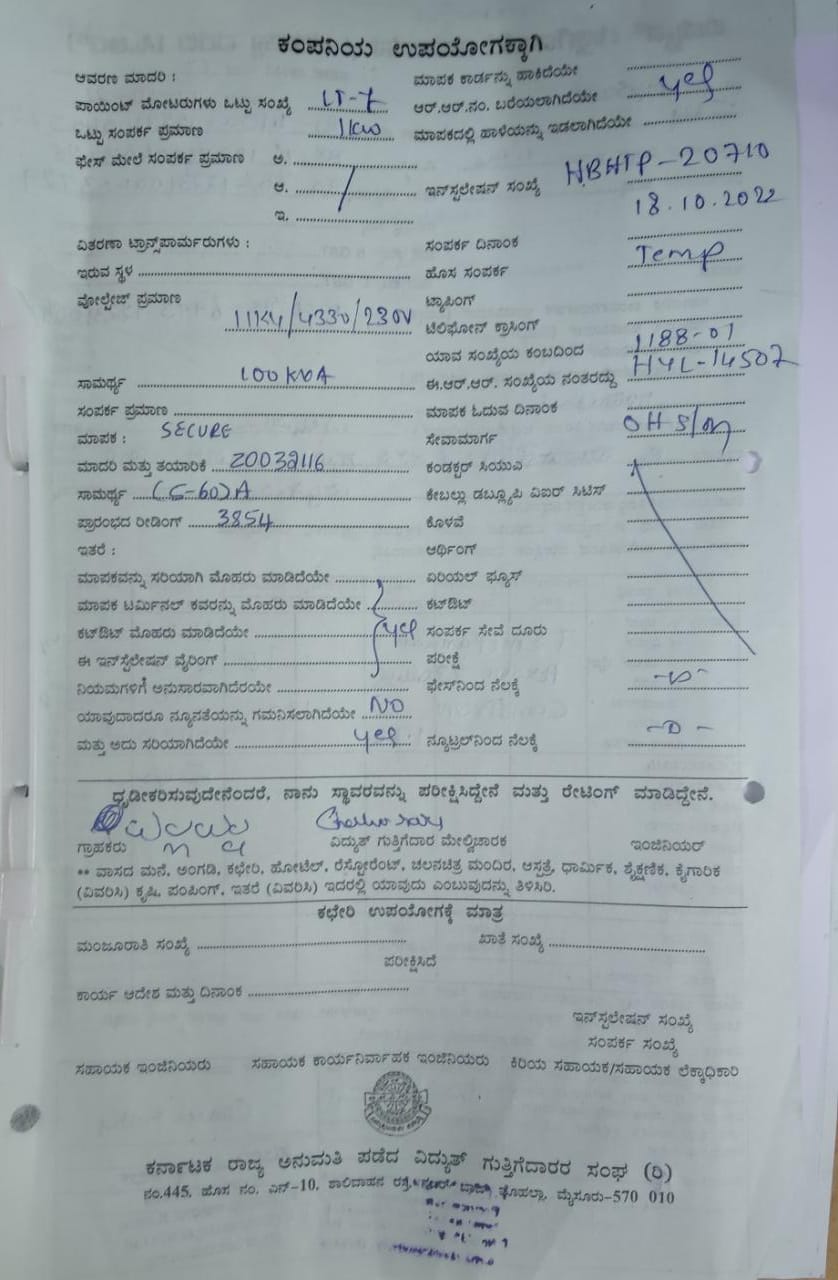 ಕಂಪನಿಯ ಉಪಯೋಗಕ್ಕಾಗಿ
ಆವರಣ ಮಾದರಿ : ಮಾಪಕ ಕಾರ್ಡನ್ನು ಹಾಕಿದೆಯೇ
ಪಾಯಿಂಟ್ ಮೋಟರುಗಳು ಒಟ್ಟು ಸಂಖ್ಯೆ LT-7 ಆರ್.ಆರ್.ನಂ. ಬರೆಯಲಾಗಿದೆಯೇ yes
ಒಟ್ಟು ಸಂಪರ್ಕ ಪ್ರಮಾಣ 1kw ಮಾಪಕದಲ್ಲಿ ಹಾಳೆಯನ್ನು ಇಡಲಾಗಿದೆಯೇ
ಫೇಸ್ ಮೇಲೆ ಸಂಪರ್ಕ ಪ್ರಮಾಣ ಅ.
ಆ. ಇನ್‌ಸ್ಟಲೇಷನ್ ಸಂಖ್ಯೆ HBHTP-20710
ಇ. 18.10.2022
ವಿತರಣಾ ಟ್ರಾನ್ಸ್‌ಫಾರ್ಮರುಗಳು : ಸಂಪರ್ಕ ದಿನಾಂಕ
ಇರುವ ಸ್ಥಳ ಹೊಸ ಸಂಪರ್ಕ Temp
ವೋಲ್ಟೇಜ್ ಪ್ರಮಾಣ ಟ್ಯಾಪಿಂಗ್
11KV/4330/230V ಟೆಲಿಫೋನ್ ಕ್ರಾಸಿಂಗ್
ಯಾವ ಸಂಖ್ಯೆಯ ಕಂಬದಿಂದ 1188-01
ಸಾಮರ್ಥ್ಯ 100 KVA ಈ.ಆರ್.ಆರ್. ಸಂಖ್ಯೆಯ ನಂತರದ್ದು HYL-14507
ಸಂಪರ್ಕ ಪ್ರಮಾಣ ಮಾಪಕ ಓದುವ ದಿನಾಂಕ
ಮಾಪಕ : SECURE ಸೇವಾಮಾರ್ಗ OH
ಮಾದರಿ ಮತ್ತು ತಯಾರಿಕೆ 20032116 ಕಂಡಕ್ಟರ್ ಸಿಯುಎ
ಸಾಮರ್ಥ್ಯ (5-60)A ಕೇಬಲ್ಲು ಡಬ್ಲ್ಯೂಪಿ ಏಐರ್ ಸಿಟಿಸ್
ಪ್ರಾರಂಭದ ರೀಡಿಂಗ್ 3854 ಕೊಳವೆ
ಇತರೆ : ಆರ್ಥಿಂಗ್
ಮಾಪಕವನ್ನು ಸರಿಯಾಗಿ ಮೊಹರು ಮಾಡಿದೆಯೇ ಏರಿಯಲ್ ಫ್ಯೂಸ್
ಮಾಪಕ ಟರ್ಮಿನಲ್ ಕವರನ್ನು ಮೊಹರು ಮಾಡಿದೆಯೇ ಕಟ್‌ಔಟ್
ಕಟ್‌ಔಟ್ ಮೊಹರು ಮಾಡಿದೆಯೇ yes ಸಂಪರ್ಕ ಸೇವೆ ದೂರು
ಈ ಇನ್‌ಸ್ಟಲೇಷನ್ ವೈರಿಂಗ್ ಪರೀಕ್ಷೆ
ನಿಯಮಗಳಿಗೆ ಅನುಸಾರವಾಗಿದೆರಯೇ ಫೇಸ್‌ನಿಂದ ನೆಲಕ್ಕೆ
ಯಾವುದಾದರೂ ನ್ಯೂನತೆಯನ್ನು ಗಮನಿಸಲಾಗಿದೆಯೇ NO
ಮತ್ತು ಅದು ಸರಿಯಾಗಿದೆಯೇ yes ನ್ಯೂಟ್ರಲ್‌ನಿಂದ ನೆಲಕ್ಕೆ
ಧೃಡೀಕರಿಸುವುದೇನೆಂದರೆ, ನಾನು ಸ್ಥಾವರವನ್ನು ಪರೀಕ್ಷಿಸಿದ್ದೇನೆ ಮತ್ತು ರೇಟಿಂಗ್ ಮಾಡಿದ್ದೇನೆ.
ಗ್ರಾಹಕರು ವಿದ್ಯುತ್ ಗುತ್ತಿಗೆದಾರ ಮೇಲ್ವಿಚಾರಕ ಇಂಜಿನಿಯರ್
** ವಾಸದ ಮನೆ, ಅಂಗಡಿ, ಕಛೇರಿ, ಹೋಟೆಲ್, ರೆಸ್ಟೋರೆಂಟ್, ಚಲನಚಿತ್ರ ಮಂದಿರ, ಆಸ್ಪತ್ರೆ, ಧಾರ್ಮಿಕ, ಶೈಕ್ಷಣಿಕ, ಕೈಗಾರಿಕ
(ವಿವರಿಸಿ) ಕೃಷಿ, ಪಂಪಿಂಗ್, ಇತರೆ (ವಿವರಿಸಿ) ಇದರಲ್ಲಿ ಯಾವುದು ಎಂಬುವುದನ್ನು ತಿಳಿಸಿರಿ.
ಕಛೇರಿ ಉಪಯೋಗಕ್ಕೆ ಮಾತ್ರ
ಮಂಜೂರಾತಿ ಸಂಖ್ಯೆ ಖಾತೆ ಸಂಖ್ಯೆ
ಪರೀಕ್ಷಿಸಿದೆ
ಕಾರ್ಯ ಆದೇಶ ಮತ್ತು ದಿನಾಂಕ
ಇನ್‌ಸ್ಟಲೇಷನ್ ಸಂಖ್ಯೆ
ಸಂಪರ್ಕ ಸಂಖ್ಯೆ
ಸಹಾಯಕ ಇಂಜಿನಿಯರು ಸಹಾಯಕ ಕಾರ್ಯನಿರ್ವಾಹಕ ಇಂಜಿನಿಯರು ಕಿರಿಯ ಸಹಾಯಕ/ಸಹಾಯಕ ಲೆಕ್ಕಾಧಿಕಾರಿ
ಕರ್ನಾಟಕ ರಾಜ್ಯ ಅನುಮತಿ ಪಡೆದ ವಿದ್ಯುತ್ ಗುತ್ತಿಗೆದಾರರ ಸಂಘ (ರಿ)
ನಂ.445, ಹೊಸ ನಂ. ಎನ್-10, ಶಾಲಿವಾಹನ ರಸ್ತೆ, ಮೊಹಲ್ಲಾ, ಮೈಸೂರು-570 010